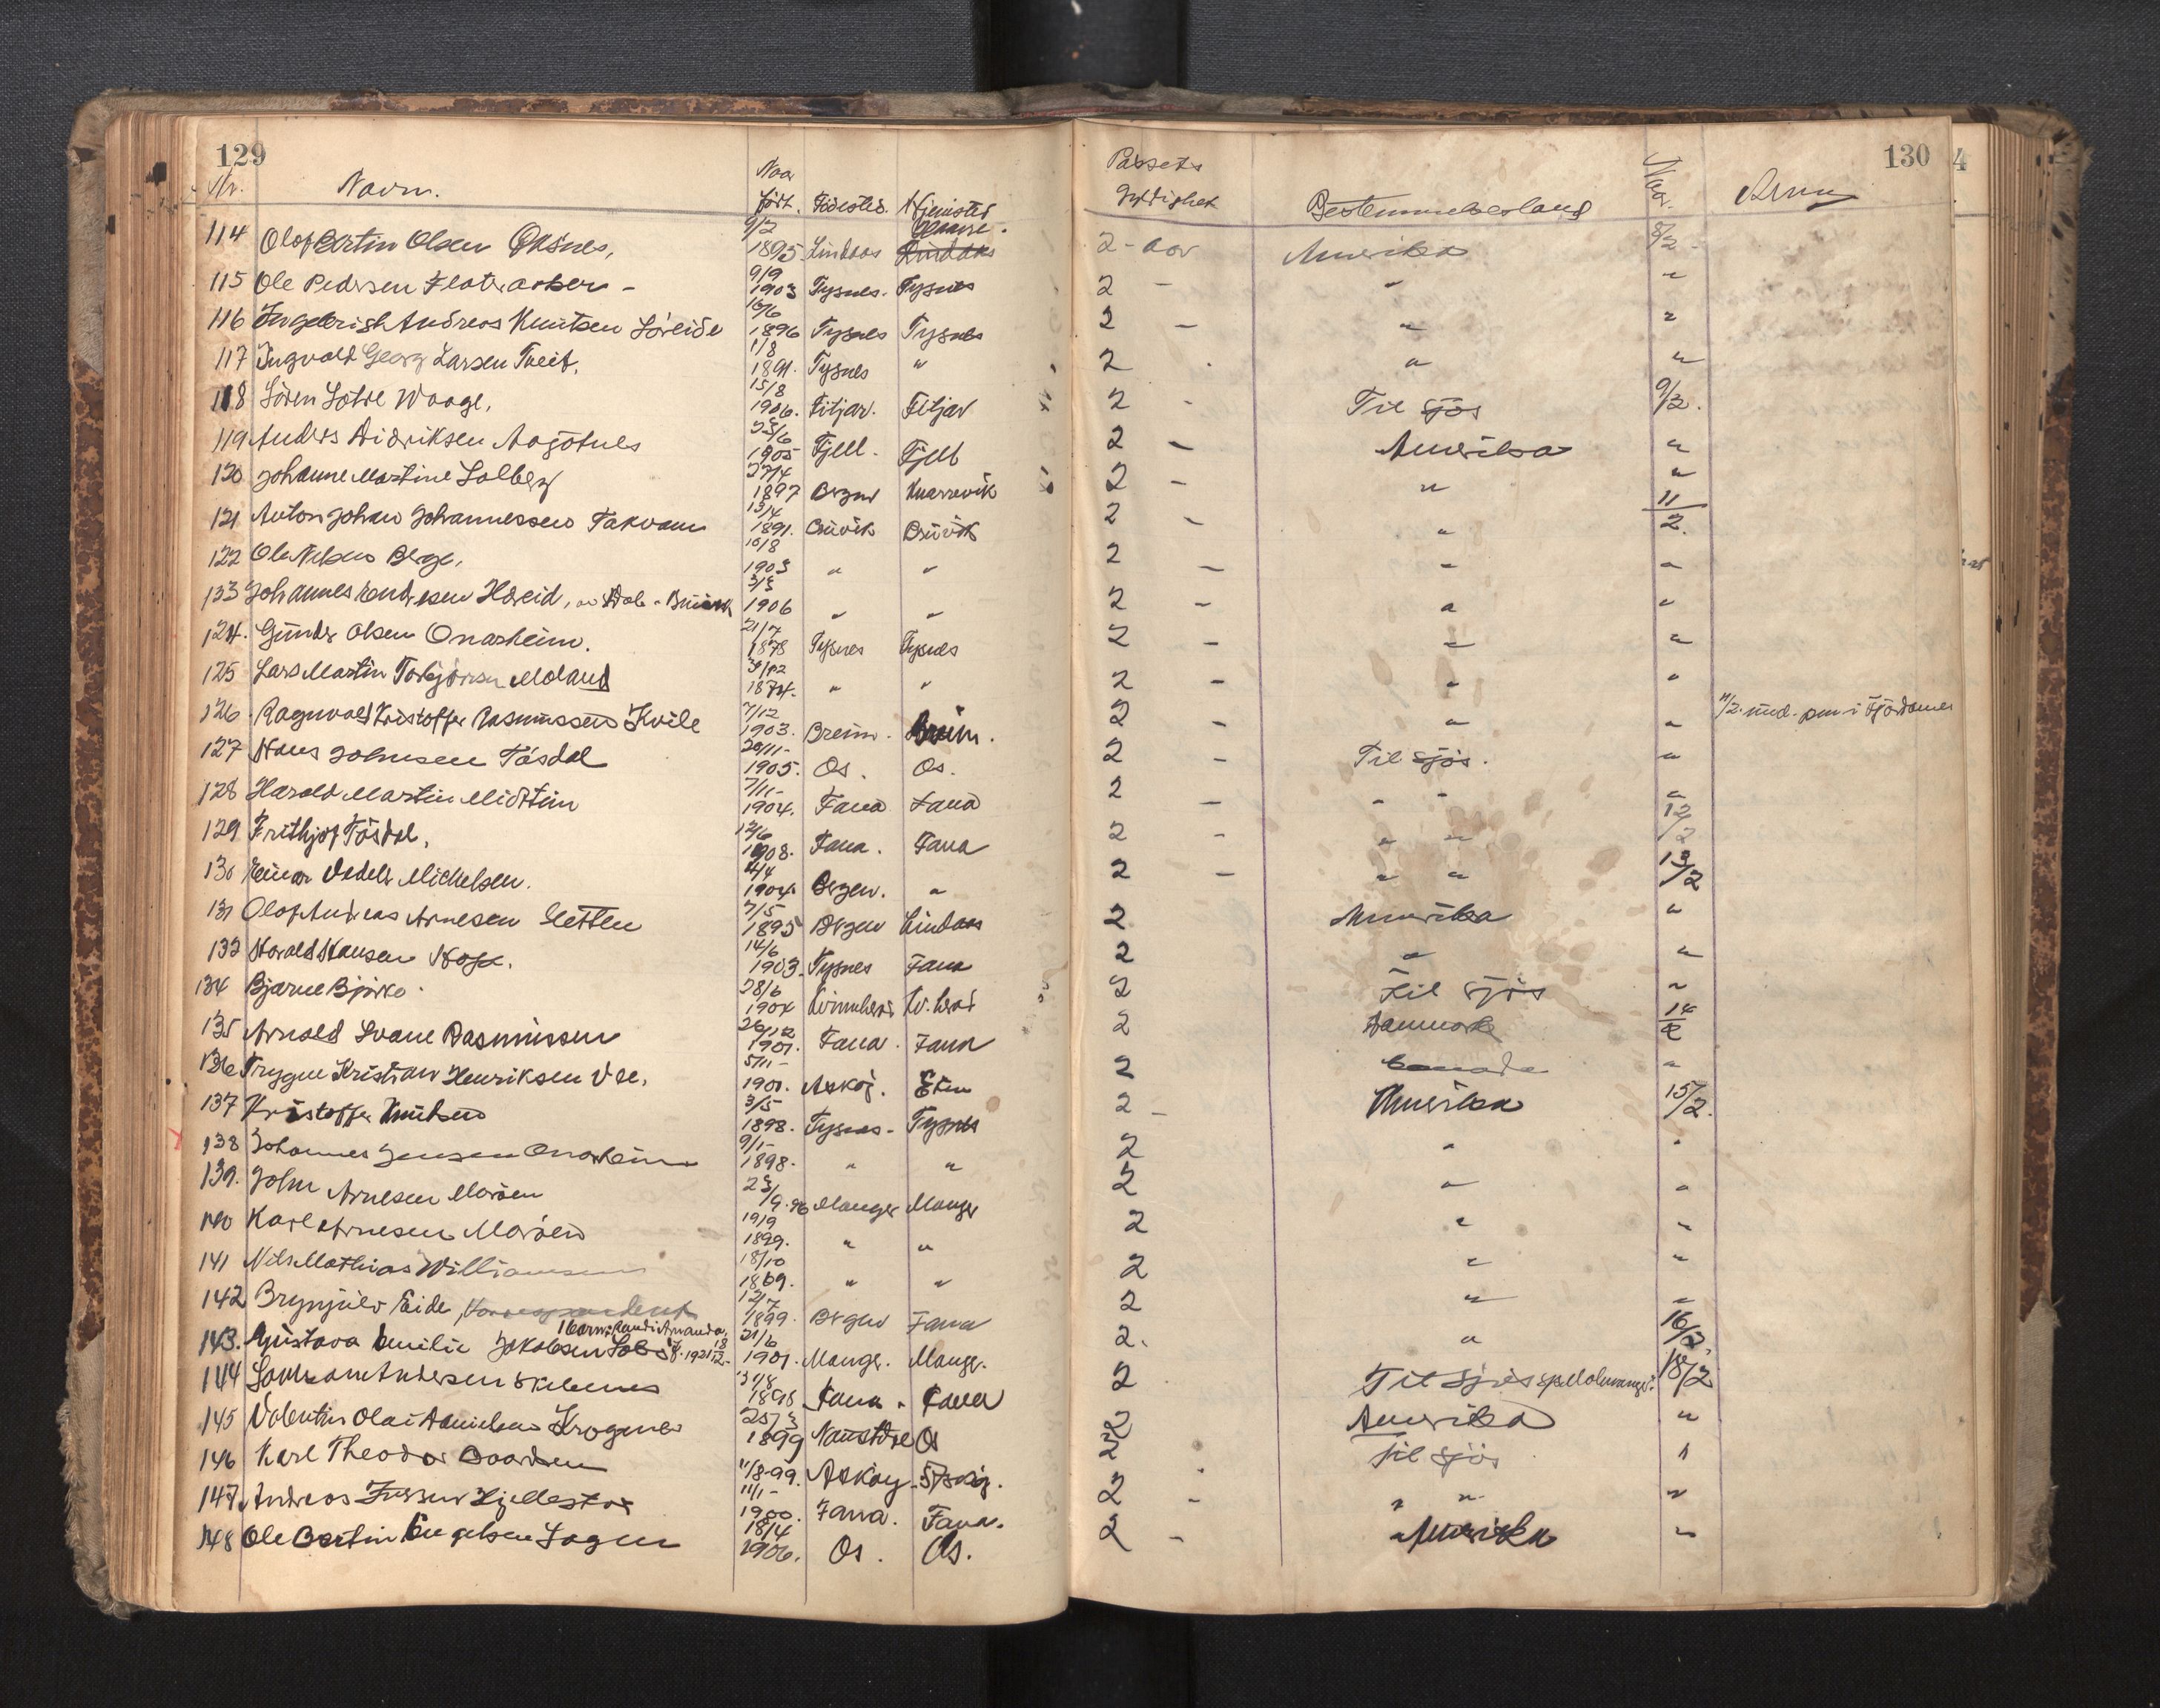 129
130
4
Nr. Navn. Naar født. Fødested. Hjemsted Passets Gyldighet Bestemmelsesland Naar. Anm
114 Olaf Bertin Olsen Oksnes, 9/2 1895 Lindaas Lindaas 2 - aar Amerika 8/2 -
115 Ole Pedersen Flateraaker - 9/9 1903 Tysnes. Tysnes 2 - " "
116 Ingebrigt Andreas Knutsen Løreide 16/6 1896 Tysnes Tysnes 2 - " "
117 Ingvald Georg Larsen Tveit. 1/8 1891. Tysnes " 2 . " "
118 Søren Sørle Waage. 15/8 1906. Fitjar. Fitjar 2 - Til sjøs 9/2.
119 Anders Didriksen Aagotnes 23/6 1905 Fjell. Fjell 2 - Amerika "
120 Johanne Martine Solberg 27/4 1897 Bergen Knarrevik 2 - " "
121 Anton Johan Johannessen Takvam 13/4 1891. Bruvik Bruvik 2 - " 11/2.
122 Ole Nilsen Berge. 10/8 1903 " " 2 - " "
133 Johannes Endresen Hæreid, 3/3 1906 " " 2 - " "
124. Gunder Olsen Onarheim. 21/7 1878 Tysnes Tysnes 2 - " "
125 Lars Martin Torbjørnsen Moland 31/12 1874. " " 2 - " "
126 Ragnvald Kristoffer Rasmussen Kvile 7/12 1903. Breim. Breim. 2 - " " 11/2. i Fjordane
127 Hans Johnsen Tøsdal 20/11- 1905. Os. Os. 2 - Til sjøs. "
128 Harald Martin Midttun 7/11- 1904. Fana Fana 2 - " " "
129 Frithjof Tøsdal. 12/6 1908. Fana. Fana 2 - " " 12/2
130 Einar Vedeler Michelsen. 4/4 1904. Bergen. " 2 - " " 13/2
131 Olaf Andreas Arnesen Sletten 7/5 1895 Bergen Lindaas 2 Amerika "
133 Harald Hansen Hope. 14/6 1903. Tysnes Fana 2 " "
134 Bjarne Bjørko. 28/6 1904 Kvinnherad Kv.herad 2 Til sjøs "
135 Arnold Svane Rasmussen 26/12 1901. Fana. Fana 2 Danmark 14/2
136 Trygve Kristian Henriksen Vee. 5/11- 1901. Askøy. Etne 2 Canada "
137 Kristoffer Knutsen 3/5 1898. Tysnes - Tysnes 2 - Amerika 15/2.
138 Johannes Jensen Onarheim 9/1- 1898. " " 2 " "
139. John Arnesen Marøen 23/9.96 Manger Manger 2 " "
140 Karl Arnesen Marøen 19/9 1899. " " 2 " "
141 Nils Mathias Williamsen 18/10 1869. " " 2 " "
142 Brynjulv Eide, Korrespondent 12/7 1899. Bergen Fana 2 " "
1 barn: Randi Amanda, f. 18/12. 1921
143. Gustava Emilie Jakobsen 21/6 1901. Manger. Manger. 2. " 16/2.
144 Andersen Skibenes 31/8 1898 Fana. Fana 2 Til sjøs 18/2
145 Valentin Olai Danielsen Krognes 25/3 1899 Naustdal Os 2 Amerika "
146 Karl Theodor Baardsen 11/8-99. Askøy Askøy. 2 Til sjøs "
147 Andreas Hjellestad 11/1- 1900. Fana. Fana. 2 - " " "
148 Ole Bertin Engelsen Søgnen 18/4 1906. Os. Os. 2 - Amerika "